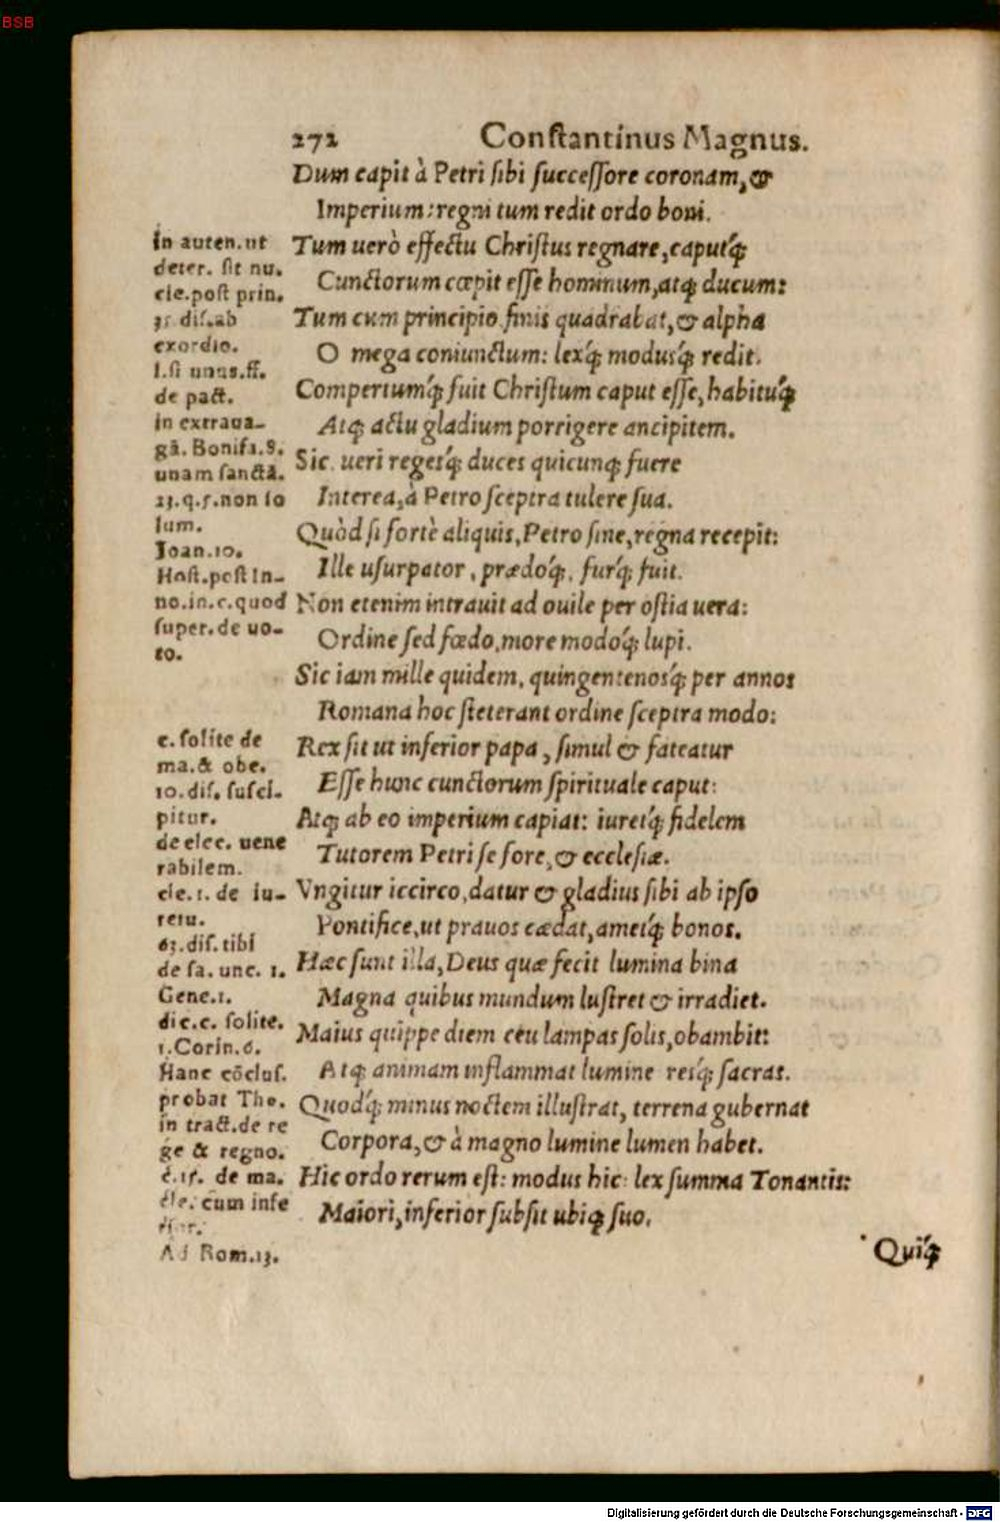 BSB
272 Constantinus Magnus.
Dum capit à Petri sibi successore coronam, &
Imperium: regni tum redit ordo boni.
Tum uerò effectu Christus regnare, caputq́;
Cunctorum cœpit esse hominum, atq; ducum:
Tum cum principio finis quadrabat, & alpha
O mega coniunctum: lexq́; modusq́; redit.
Compertumq́; fuit Christum caput esse, habituq́;
Atq; actu gladium porrigere ancipitem.
Sic ueri regesq́; duces quicunq; fuere
Interea, à Petro sceptra tulere sua.
Quòd si fortè aliquis, Petro sine, regna recepit:
Ille usurpator, prædoq́;, furq́; fuit.
Non etenim intrauit ad ouile per ostia uera:
Ordine sed fœdo, more modoq́; lupi.
Sic iam mille quidem, quingentenosq́; per annos
Romana hoc steterant ordine sceptra modo:
Rex sit ut inferior papa, simul & fateatur
Esse hunc cunctorum spirituale caput:
Atq; ab eo imperium capiat: iuretq́; fidelem
Tutorem Petri se fore, & ecclesiæ.
Vngitur iccirco, datur & gladius sibi ab ipso
Pontifice, ut prauos cædat, ametq́; bonos.
Hæc sunt illa, Deus quæ fecit lumina bina
Magna quibus mundum lustret & irradiet.
Maius quippe diem ceu lampas solis, obambit:
Atq; animam inflammat lumine resq́; sacras.
Quodq́; minus noctem illustrat, terrena gubernat
Corpora, & à magno lumine lumen habet.
Hic ordo rerum est: modus hic: lex summa Tonantis:
Maiori, inferior subsit ubiq; suo.
Quiq́;
In auten. ut
deter. sit nu.
cle. post prin.
35 dis. ab
exordio.
l. si unus. ff.
de pact.
in extraua-
gā. Bonifa. 8.
unam sanctā.
23. q. 5. non so
lum.
Joan. 10.
Host. post In-
no. in. c. quod
super. de uo-
to.
c. solite de
ma. & obe.
10. dis. susci-
pitur.
de elec. uene
rabilem.
cle. 1. de iu-
reiu.
63. dis. tibi
de sa. unc. 1.
Gene. 1.
dic. c. solite.
1. Corin. 6.
Hanc cōclus.
probat Tho.
in tract. de re
ge & regno.
c. 15. de ma.
cum infe
Ad Rom. 13.
Digitalisierung gefördert durch die Deutsche Forschungsgemeinschaft - DFG